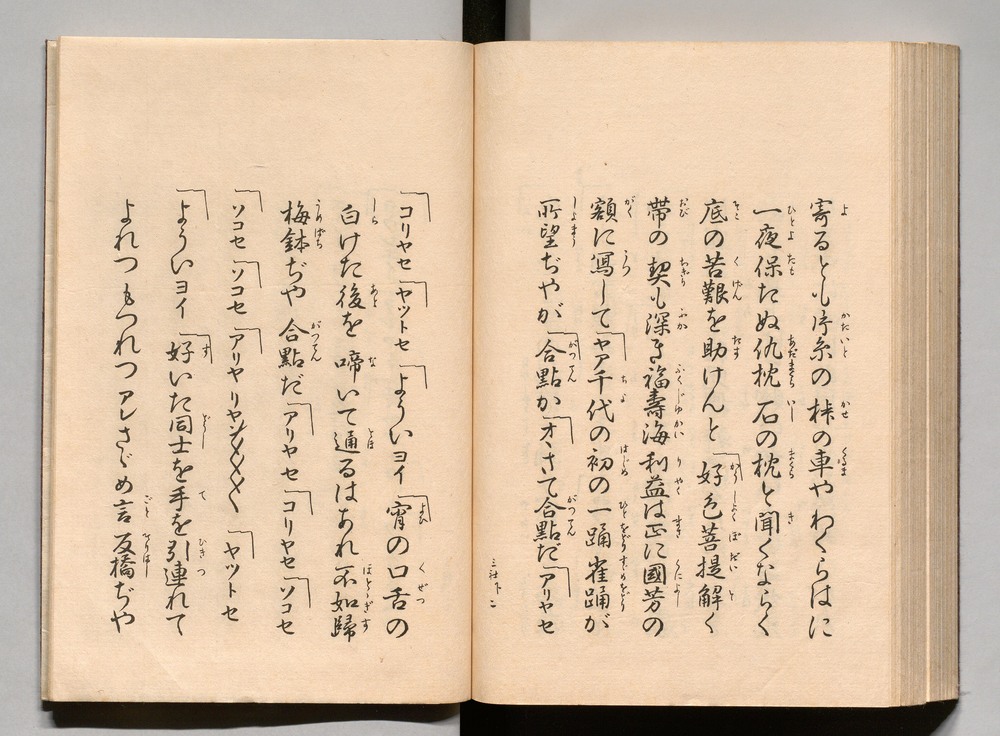 寄るとも片糸の 桛の車や わくらはに
一夜保たぬ仇枕 石の枕と聞くならく
底の苦艱を助けんと 「好色菩提解く
帯の 契も深き福壽海利益は正に國芳の
額に寫して「ヤア千代の初の一踊雀踊が
所望ぢやが「合點か「オヽさて合點だ「アリヤセ
三社下 二
「コリヤセ「ヤツトセ「よういヨイ「宵の口舌の
白けた後を 啼いて通るはあれ不如歸
梅鉢ぢや 合點だ「アリヤセ「コリヤセ「ソコセ
「ソコセ「ソコセ「アリヤリヤン〳〵〳〵〳〵「ヤツトセ
「よういヨイ「好いた同士を手を引連れて
よれつ もつれつ アレさゞめ言 反橋ぢや